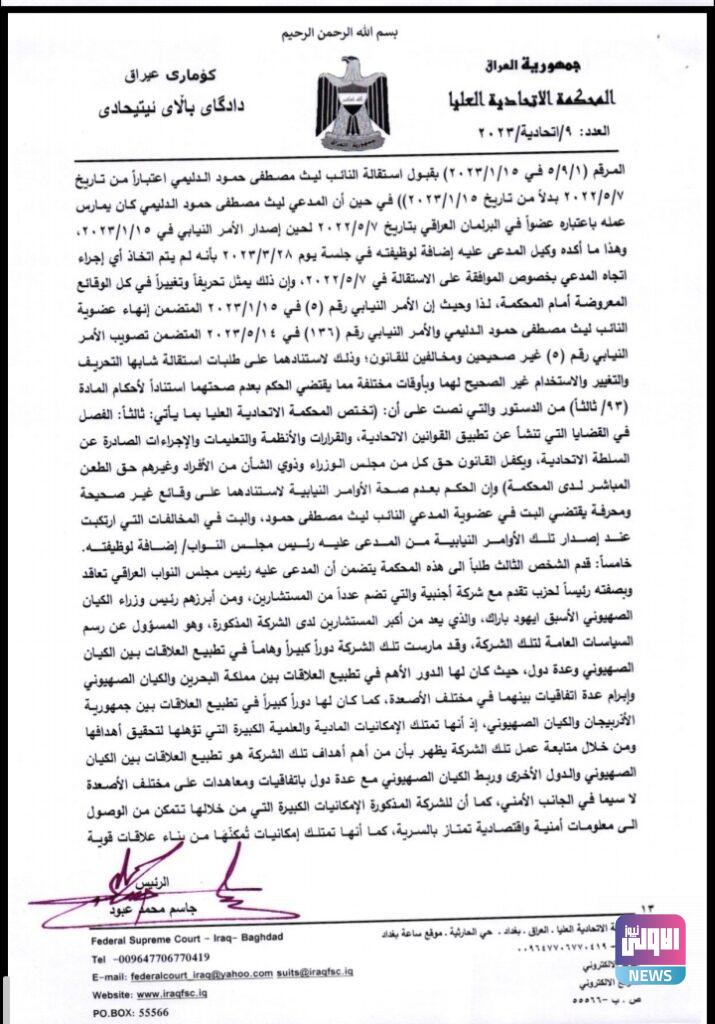 بسم الله الرحمن الرحيم
جمهورية العراق
المحكمة الاتحادية العليا
العدد: ٩/اتحادية/٢٠٢٣
كۆماری عیراق
دادگای باڵای ئیتیحادی
جمهورية العراق
المرقم (٥/٩/١ في ٢٠٢٣/١/١٥) بقبول استقالة النائب ليث مصطفى حمود الدليمي اعتباراً من تاريخ
٢٠٢٢/٥/٧ بدلاً من تاريخ ٢٠٢٣/١/١٥)) في حين أن المدعي ليث مصطفى حمود الدليمي كان يمارس
عمله باعتباره عضواً في البرلمان العراقي بتاريخ ٢٠٢٢/٥/٧ لحين إصدار الأمر النيابي في ٢٠٢٣/١/١٥،
وهذا ما أكده وكيل المدعى عليه إضافة لوظيفته في جلسة يوم ٢٠٢٣/٣/٢٨ بأنه لم يتم اتخاذ أي إجراء
اتجاه المدعي بخصوص الموافقة على الاستقالة في ٢٠٢٢/٥/٧، وإن ذلك يمثل تحريفاً وتغييراً في كل الوقائع
المعروضة أمام المحكمة، لذا وحيث إن الأمر النيابي رقم (٥) في ٢٠٢٣/١/١٥ المتضمن إنهاء عضوية
النائب ليث مصطفى حمود الدليمي والأمر النيابي رقم (١٣٦) في ٢٠٢٣/٥/١٤ المتضمن تصويب الأمر
النيابي رقم (٥) غير صحيحين ومخالفين للقانون؛ وذلك لاستنادهما على طلبات استقالة شابها التحريف
والتغيير والاستخدام غير الصحيح لهما وبأوقات مختلفة مما يقتضي الحكم بعدم صحتهما استناداً لأحكام المادة
(٩٣/ ثالثاً) من الدستور والتي نصت على أن: (تختص المحكمة الاتحادية العليا بما يأتي: ثالثاً: الفصل
في القضايا التي تنشأ عن تطبيق القوانين الاتحادية، والقرارات والأنظمة والتعليمات والإجراءات الصادرة عن
السلطة الاتحادية، ويكفل القانون حق كل من مجلس الوزراء وذوي الشأن من الأفراد وغيرهم حق الطعن
المباشر لدى المحكمة) وإن الحكم بعدم صحة الأوامر النيابية لاستنادهما على وقائع غير صحيحة
ومحرفة يقتضي البت في عضوية المدعي النائب ليث مصطفى حمود، والبت في المخالفات التي ارتكبت
عند إصدار تلك الأوامر النيابية من المدعى عليه رئيس مجلس النواب/ إضافة لوظيفته.
خامساً: قدم الشخص الثالث طلباً الى هذه المحكمة يتضمن أن المدعى عليه رئيس مجلس النواب العراقي تعاقد
وبصفته رئيساً لحزب تقدم مع شركة أجنبية والتي تضم عدداً من المستشارين، ومن أبرزهم رئيس وزراء الكيان
الصهيوني الأسبق ايهود باراك، والذي يعد من أكبر المستشارين لدى الشركة المذكورة، وهو المسؤول عن رسم
السياسات العامة لتلك الشركة، وقد مارست تلك الشركة دوراً كبيراً وهاماً في تطبيع العلاقات بين الكيان
الصهيوني وعدة دول، حيث كان لها الدور الأهم في تطبيع العلاقات بين مملكة البحرين والكيان الصهيوني
وإبرام عدة اتفاقيات بينهما في مختلف الأصعدة، كما كان لها دوراً كبيراً في تطبيع العلاقات بين جمهورية
الأذربيجان والكيان الصهيوني، إذ أنها تمتلك الإمكانيات المادية والعلمية الكبيرة التي تؤهلها لتحقيق أهدافها
ومن خلال متابعة عمل تلك الشركة يظهر بأن من أهم أهداف تلك الشركة هو تطبيع العلاقات بين الكيان
الصهيوني والدول الأخرى وربط الكيان الصهيوني مع عدة دول باتفاقيات ومعاهدات على مختلف الأصعدة
لا سيما في الجانب الأمني، كما أن للشركة المذكورة الإمكانيات الكبيرة التي من خلالها تتمكن من الوصول
الى معلومات أمنية واقتصادية تمتاز بالسرية، كما أنها تمتلك إمكانيات تُمكنّهَا من بناء علاقات قوية
الرئيس
جاسم محمد عبود
١٣
ة الاتحادية العليا . العراق . بغداد . حي الحارثية . موقع ساعة بغداد
٠٠٩٦٤٧٧٠٦٧٧٠٤١٩ -
الالكتروني
ع الالكتروني
ص . ب - ٥٥٥٦٦
Federal Supreme Court – Iraq- Baghdad
Tel -009647706770419
E-mail: federalcourt_iraq@yahoo.com suits@iraqfsc.iq
Website: www.iraqfsc.iq
PO.BOX: 55566
الاولى نيوز
NEWS